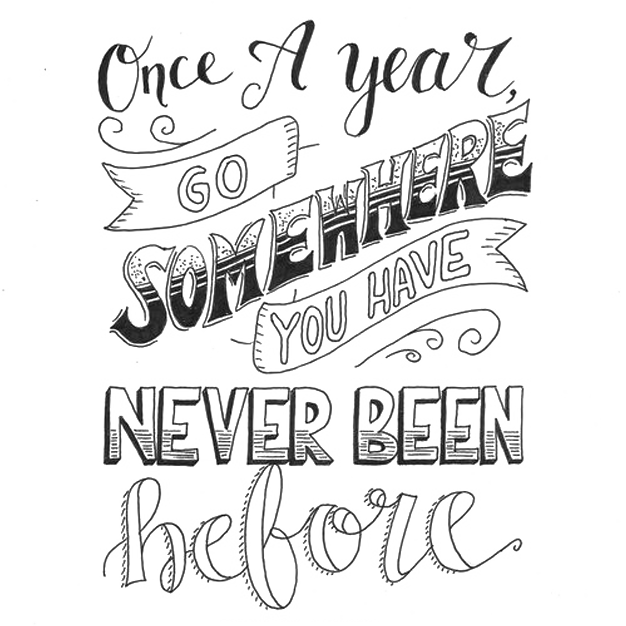 Once A year,
GO
SOMEWHERE
YOU HAVE
NEVER BEEN
before